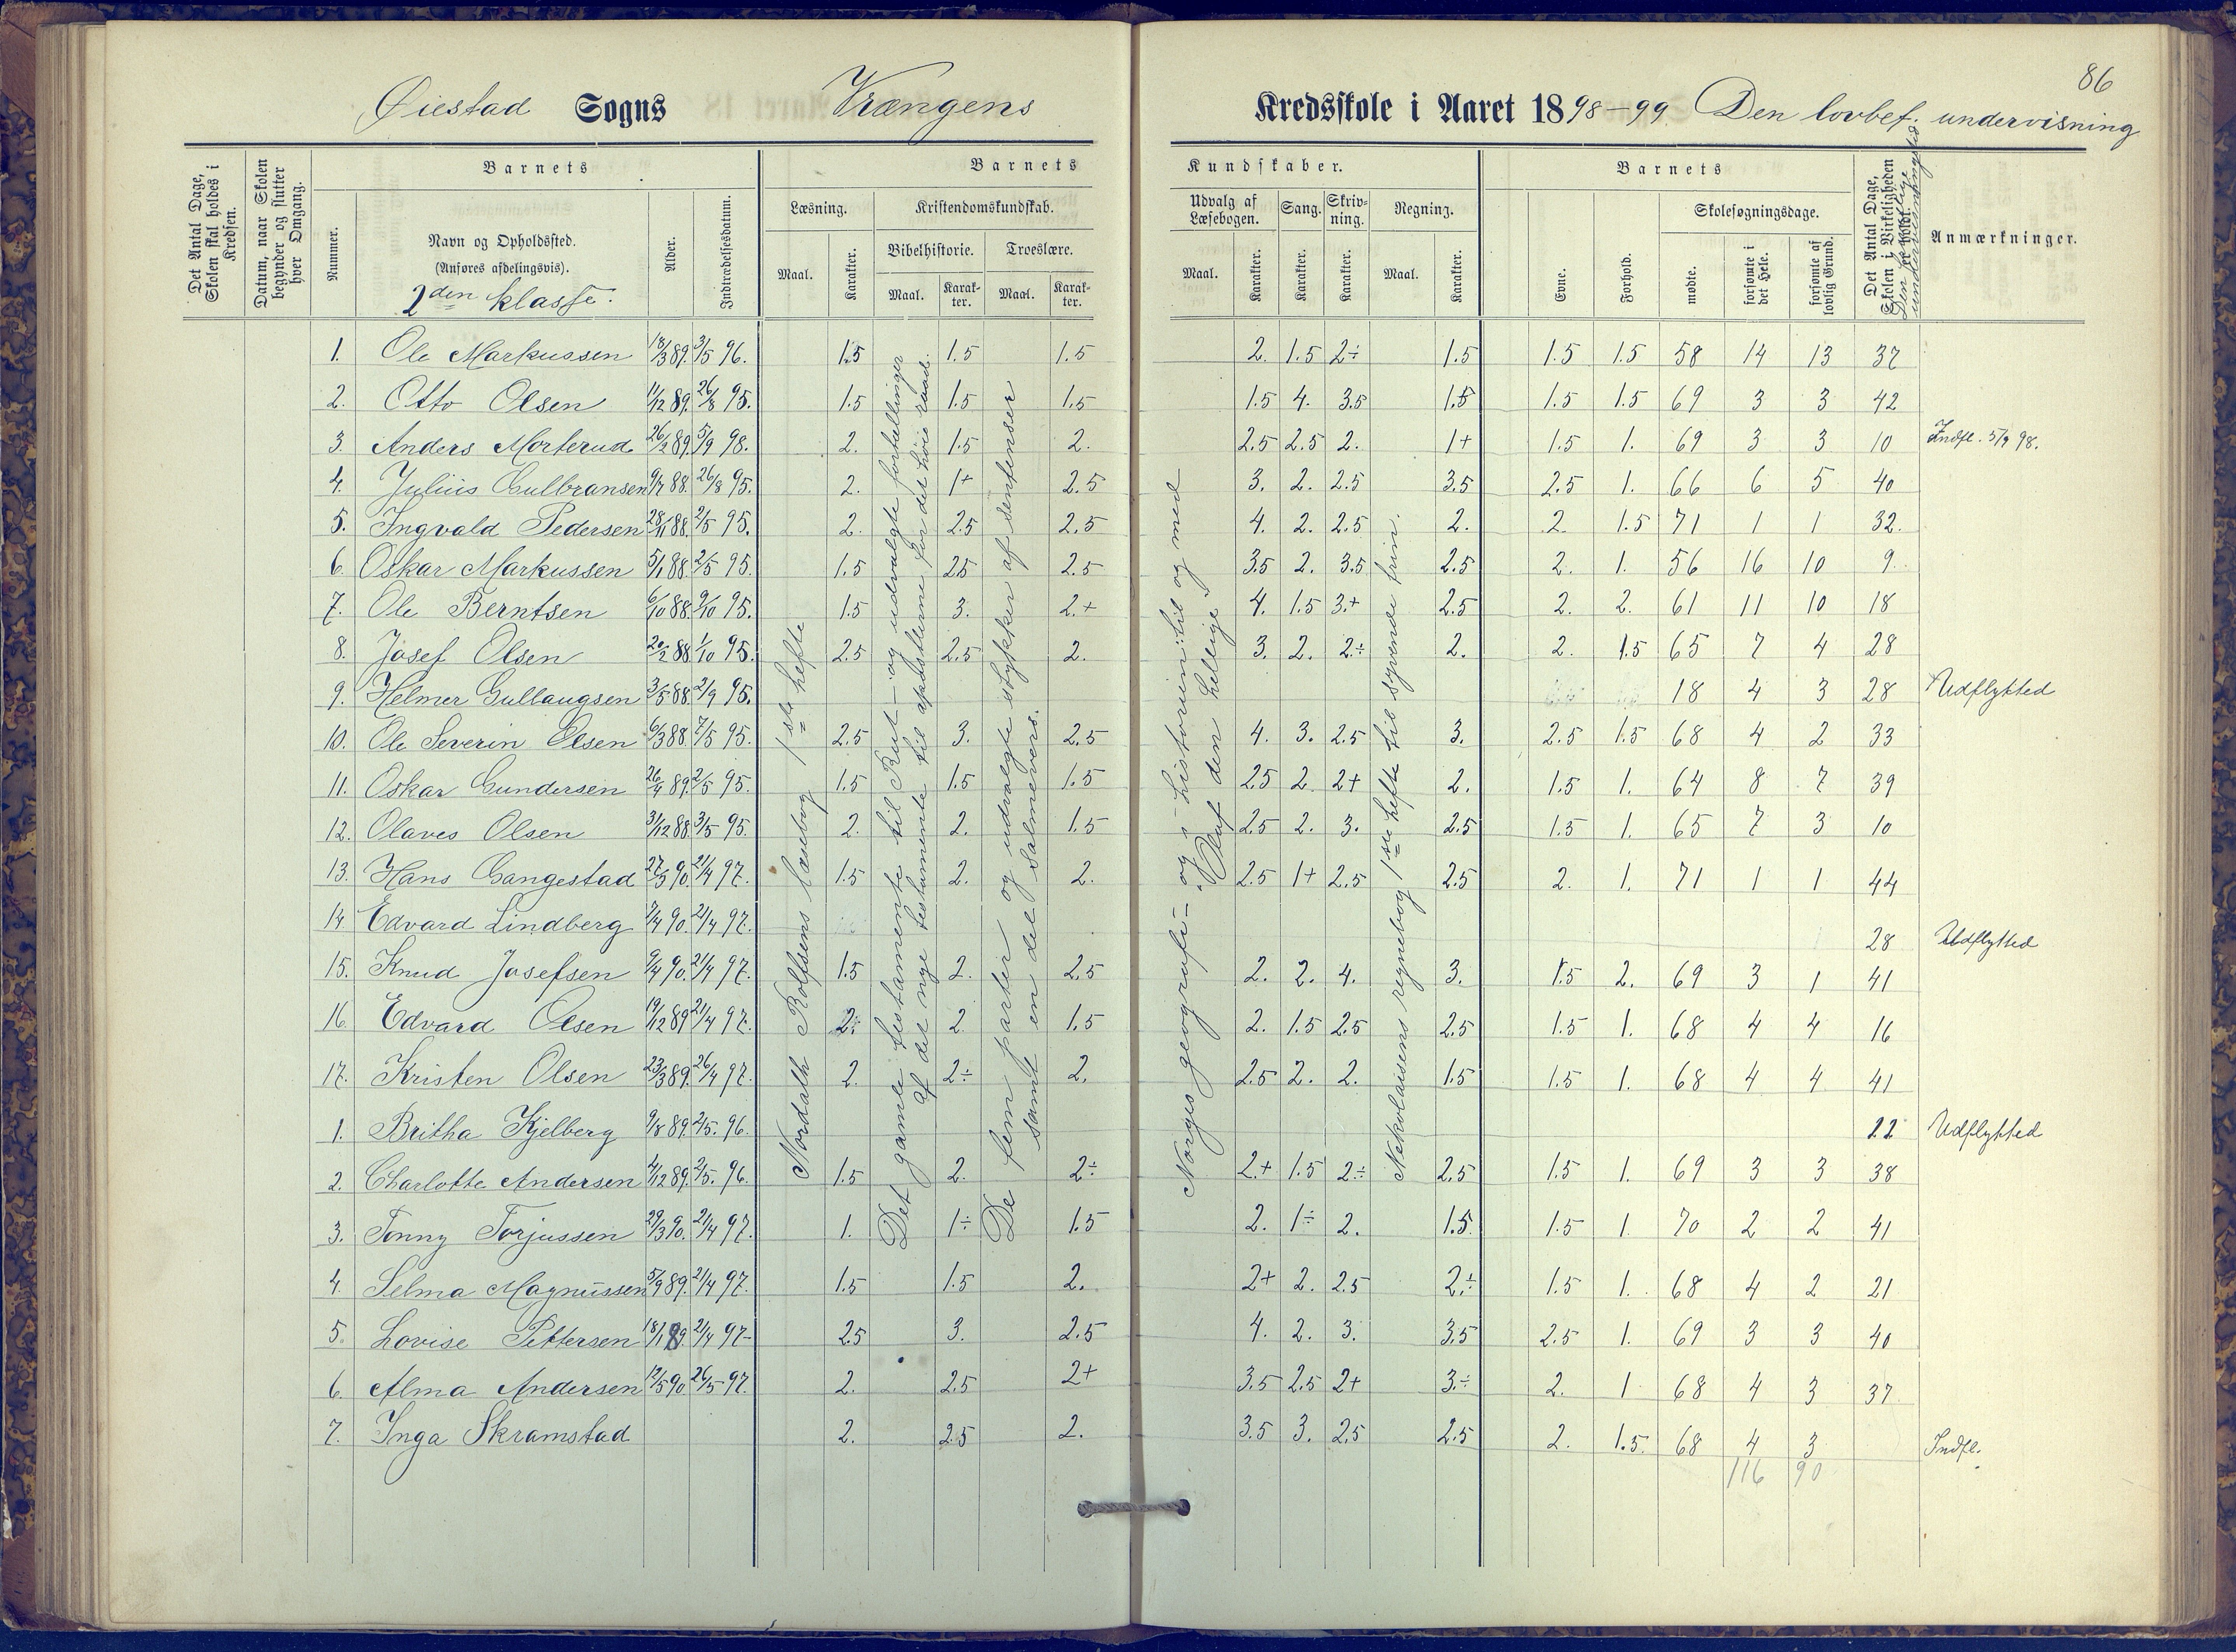 86
Øiestad Sogns Vrængens Kredsskole i Aaret 1898-99 Den lovbef. undervisning
Det Antal Dage, Skolen skal holdes i Kredsen.
Datum, naar Skolen begynder og slutter hver Omgang.
Barnets
Nummer.
Navn og Opholdssted.
(Anføres afdelingsvis).
2den klasse.
Alder.
Indtrædelsesdatum.
Barnets Kundskaber.
Læsning.
Maal.
Karakter.
Kristendomskundskab.
Bibelhistorie.
Maal.
Karakter.
Troeslære.
Maal.
Karakter.
Udvalg af Læsebogen.
Maal.
Karakter.
Sang.
Karakter.
Skrivning.
Karakter.
Regning.
Maal.
Karakter.
Barnets
Evne.
Forhold.
Skolesøgningsdage.
mødte.
forsømte i det Hele.
forsømte af lovlig Grund.
Det Antal Dage, Skolen i Virkeligheden er holdt.
Den frivillige undervisningstid
Anmærkninger.
1. Ole Markussen 18/3 89. 3/5 96. 1.5 1.5 1.5 2. 1.5 2÷ 1.5 1.5 1.5 58 14 13 37
2. Otto Olsen 11/12 89. 26/8 95. 1.5 1.5 1.5 1.5 4. 3.5 1.5 1.5 1.5 69 3 3 42
3. Anders Morterud 26/2 89. 5/9 98. 2. 1.5 2. 2.5 2.5 2. 1+ 1.5 1. 69 3 3 10 Indfl. 5/9 98.
4. Julius Gulbransen 9/7 88. 26/8 95. 2. 1+ 2.5 3. 2. 2.5 3.5 2.5 1. 66 6 5 40
5. Ingvald Pedersen 28/11 88. 2/5 95. 2. 2.5 2.5 4. 2. 2.5 2. 2. 1.5 71 1 1 32.
6. Oskar Markussen 5/1 88. 2/5 95. 1.5 2.5 2.5 3.5 2. 3.5 2.5 2. 1. 56 16 10 9.
7. Ole Berntsen 6/10 88. 9/10 95. 1.5 3. 2.+ 4. 1.5 3.+ 2.5 2. 2. 61 11 10 18
8. Josef Olsen 20/2 88. 1/10 95. 2.5 2.5 2. 3. 2. 2.÷ 2. 2. 1.5 65 7 4 28
9. Helmer Gullaugsen 3/5 88. 2/9 95. 18 4 3 28 Udflytted
10. Ole Severin Olsen 6/3 88. 7/5 95. 2.5 3. 2.5 4. 3. 2.5 3. 2.5 1.5 68 4 2 33
11. Oskar Gundersen 26/4 89. 2/5 95. 1.5 1.5 1.5 2.5 2. 2+ 2. 1.5 1. 64 8 7 39
12. Olaves Olsen 31/12 88. 3/5 95. 2. 2. 1.5 2.5 2. 3. 2.5 1.5 1. 65 7 3 10
13. Hans Gangestad 27/3 90. 21/4 97. 1.5 2. 2. 2.5 1+ 2.5 2.5 2. 1. 71 1 1 44
14. Edvard Lindberg 7/4 90. 21/4 97. 28 Udflytted
15. Knud Josefsen 9/4 90. 21/4 97. 1.5 2. 2.5 2. 2. 4. 3. 1.5 2. 69 3 1 41
16. Edvard Olsen 19/12 89 21/4 97. 2÷ 2. 1.5 2. 1.5 2.5 2.5 1.5 1. 68 4 4 16
17. Kristen Olsen 23/3 89. 26/4 97. 2. 2÷ 2. 2.5 2. 2. 1.5 1.5 1. 68 4 4 41
1. Britha Kjelberg 9/8 89. 2/5. 96. 22 Udflytted
2. Charlotte Andersen 4/12 89. 2/5. 96. 1.5 2. 2÷ 2.+ 1.5 2÷ 2.5 1.5 1. 69 3 3 38
3. Tonny Torjussen 29/3 90. 21/4 97. 1. 1÷ 1.5 2. 1÷ 2. 1.5 1.5 1. 70 2 2 41
4. Selma Magnussen 5/9 89. 21/4 97. 1.5 1.5 2. 2+ 2. 2.5 2.÷ 1.5 1. 68 4 2 21
5. Lovise Pettersen 18/1 89. 21/4 97- 2.5 3. 2.5 4. 2. 3. 3.5 2.5 1. 69 3 3 40
6. Alma Andersen 12/5 90 26/5 97. 2. 2.5 2+ 3.5 2.5 2+ 3.÷ 2. 1 68 4 3 37
7. Inga Skramstad 2. 2.5 2. 3.5 3. 2.5 2.5 2. 1.5. 68 4 3 Indfl.
116 90
Nordahl Rolfsens læsebog 1ste hefte
Det gamle testamente til Rut – og udvalgte fortællinger
af det nye testamente til apostlerne før det høie raad.
De fem parter og udvalgte stykker af sentenser
samt en del salmevers.
Norges geografi – og – historien: til og med
Oluf den hellige
Nikolaisens regnebog 1ste hefte til syvende trin.